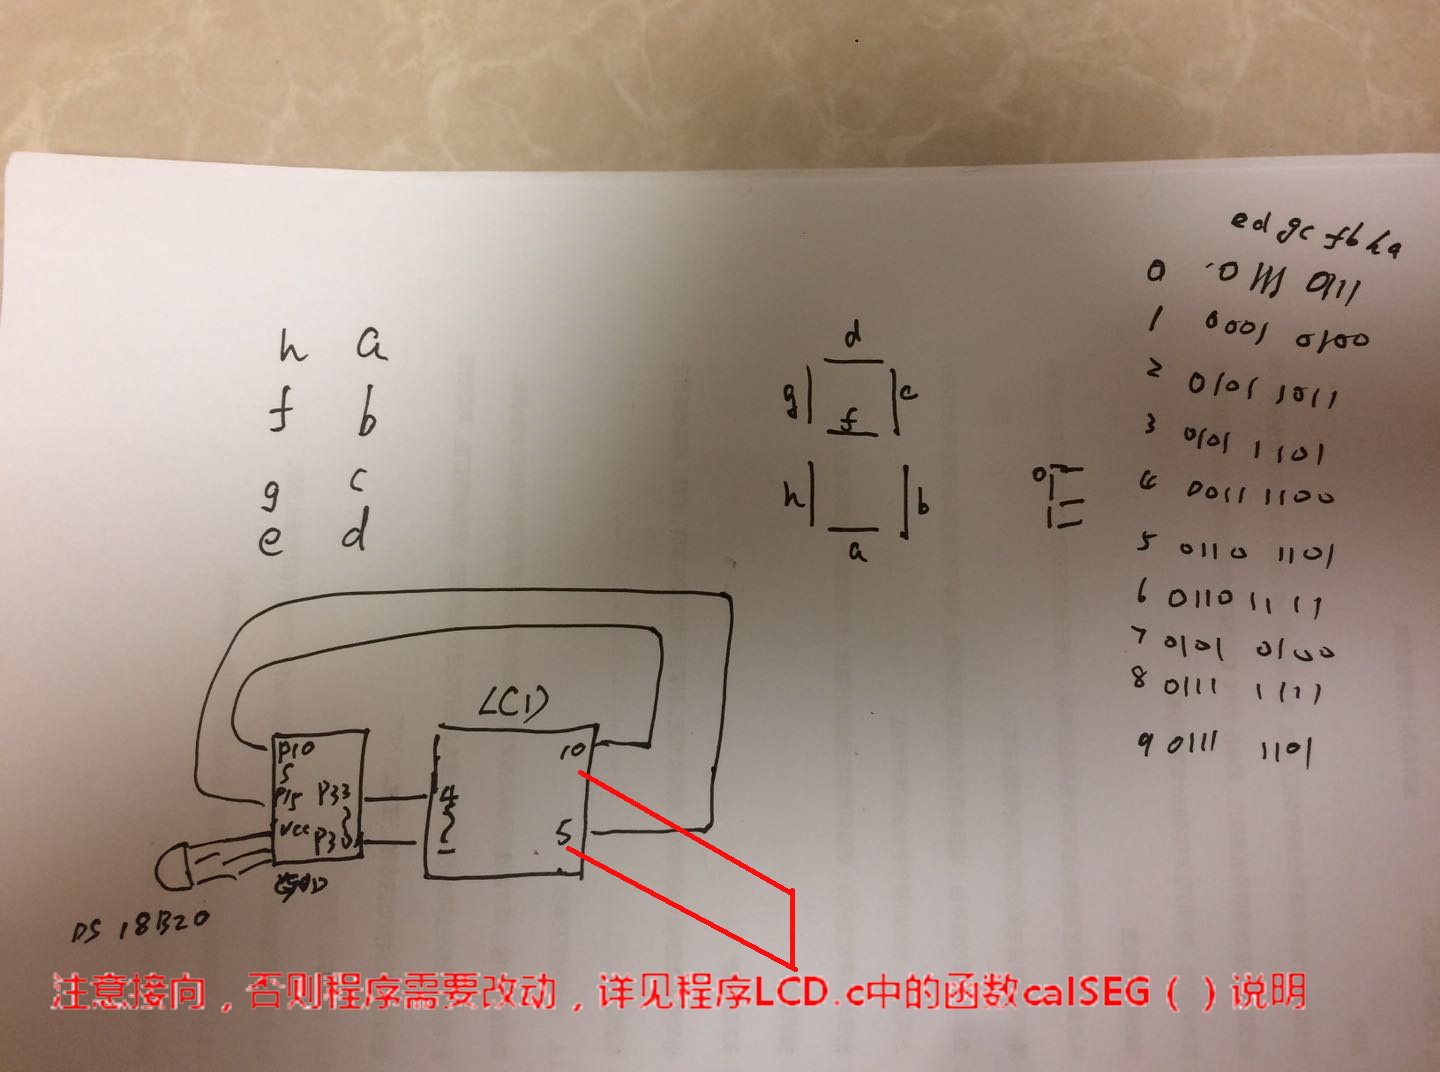 h a
f b
g c
e d
d
g c
f
h b
a
ed gc fb ha
0 0111 0111
1 0001 0100
2 0101 1011
3 0101 1101
4 0011 1100
5 0110 1101
6 0110 1111
7 0101 0100
8 0111 1111
9 0111 1101
LCD
P10 10
P15 P33 4
VCC P30 1 5
GND
DS 18B20
注意接向，否则程序需要改动，详见程序LCD.c中的函数calSEG（）说明